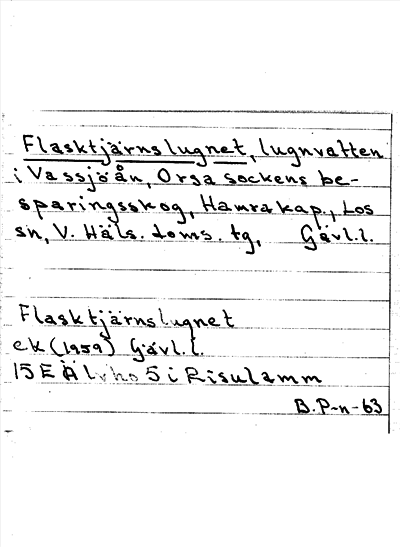 Flasktjärnslugnet, lugnvatten
i Vassjöån, Orsa sockens be-
sparingsskog, Hamra kap., Los
sn, V. Häls. doms. tg, Gävl.l.
Flasktjärnslugnet
ek (1959) Gävl.l.
15E Älvho 5i Risulamm
B.P-n-63